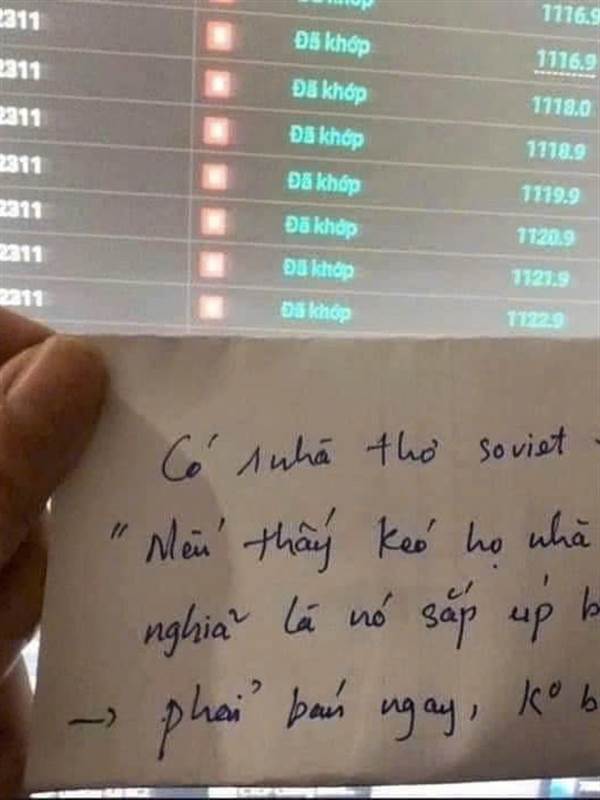 1116.9
2311 Đã khớp 1116.9
2311 Đã khớp 1118.0
2311 Đã khớp 1118.9
2311 Đã khớp 1119.9
2311 Đã khớp 1120.9
2311 Đã khớp 1121.9
2311 Đã khớp 1122.9
Có 1 nhà thơ soviet
"Nếu thấy kéo họ nhà
nghĩa là nó sắp úp b
→ phải bán ngay, ko b